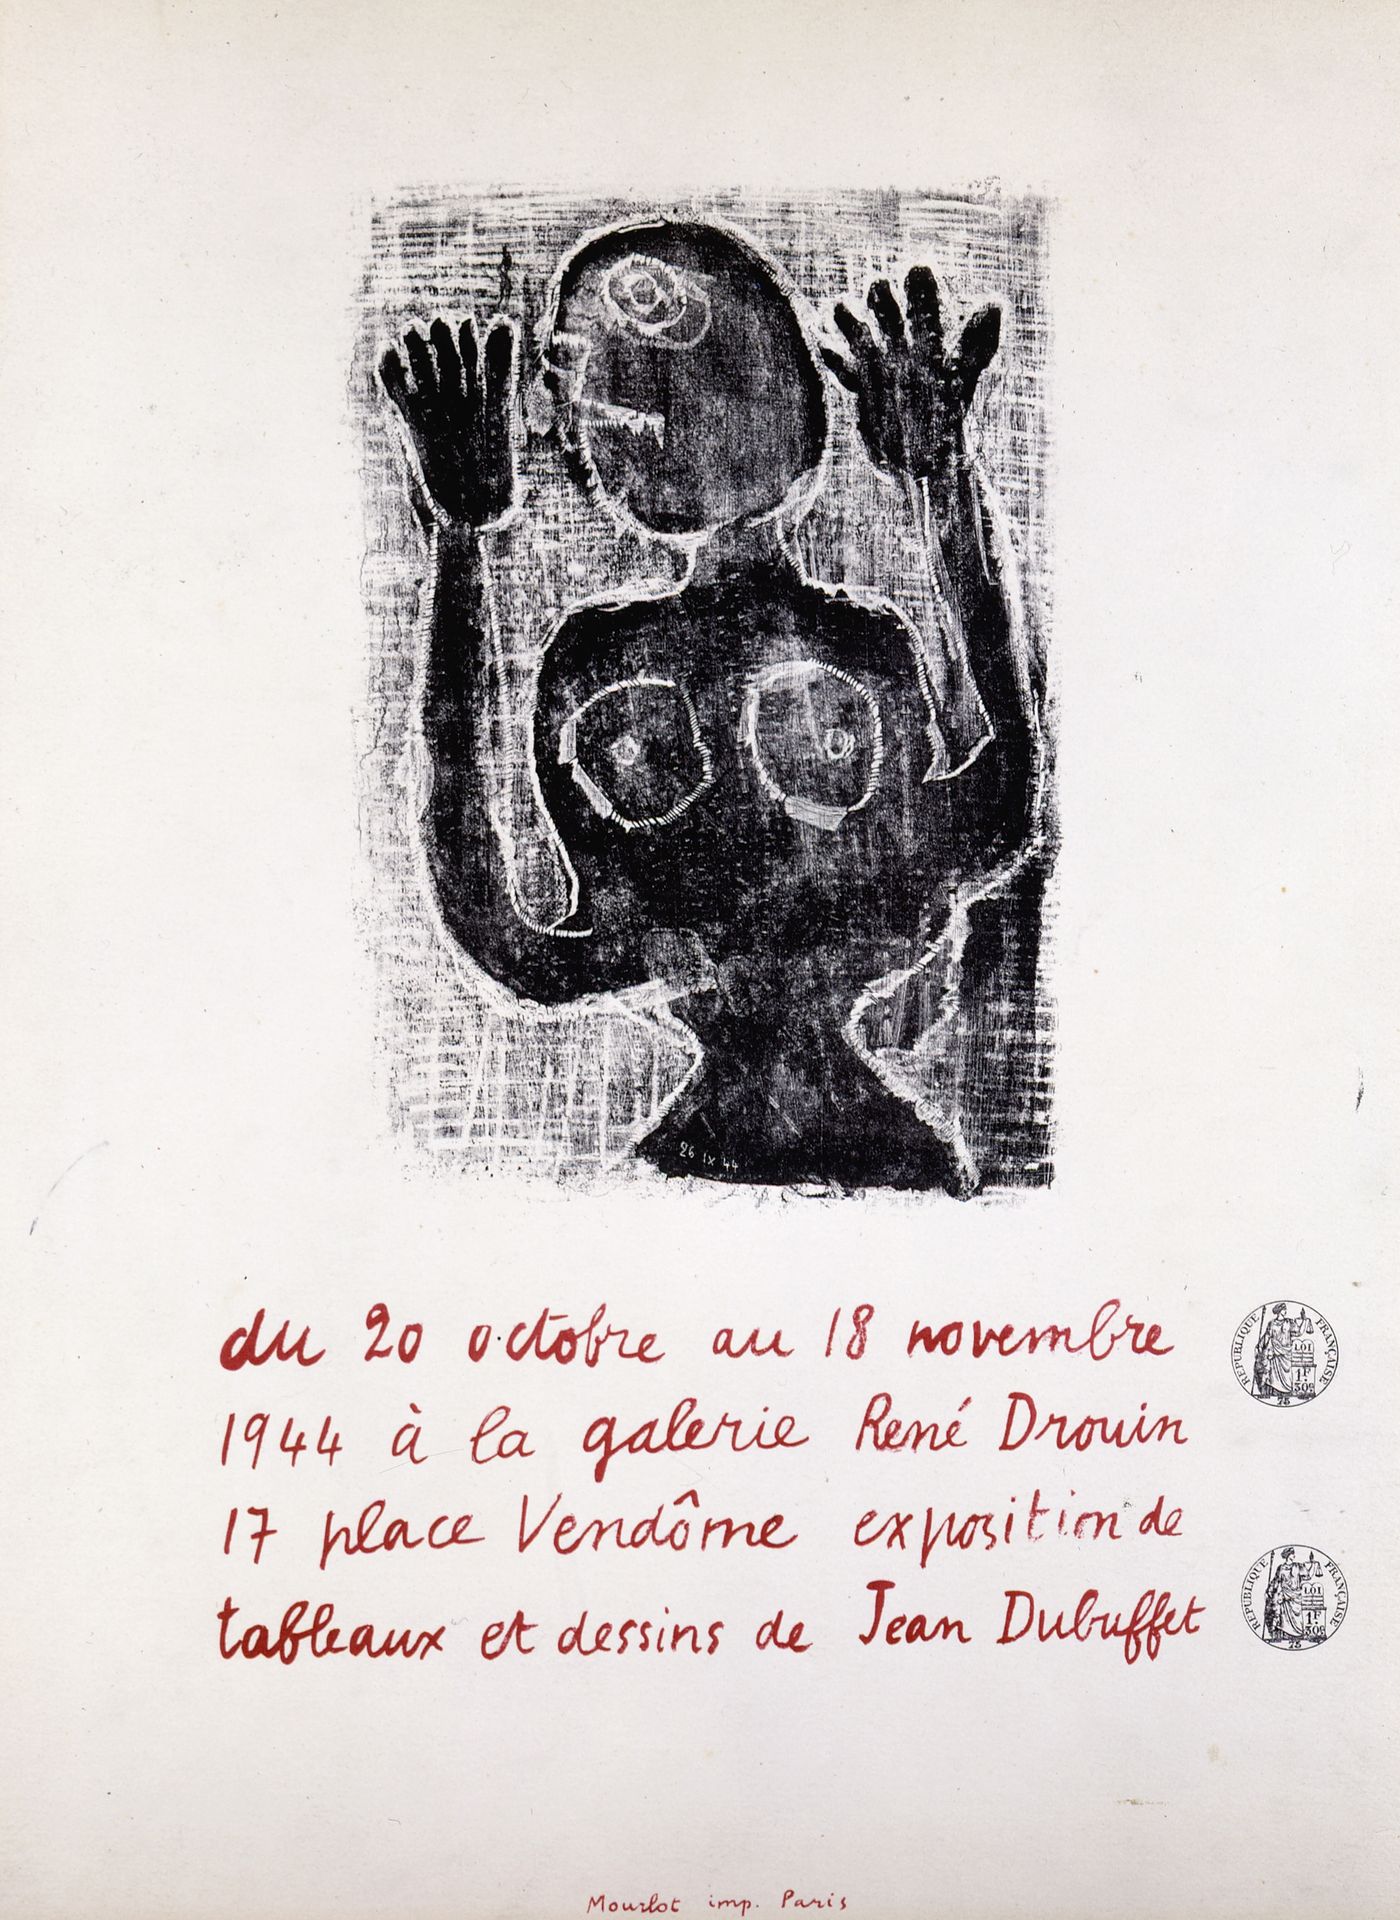 26 IX 44
du 20 octobre au 18 novembre
1944 à la galerie René Drouin
17 place Vendôme exposition de
tableaux et dessins de Jean Dubuffet
RÉPUBLIQUE FRANÇAISE
LOI
1F
50c
75
RÉPUBLIQUE FRANÇAISE
LOI
1F
50c
75
Mourlot imp. Paris